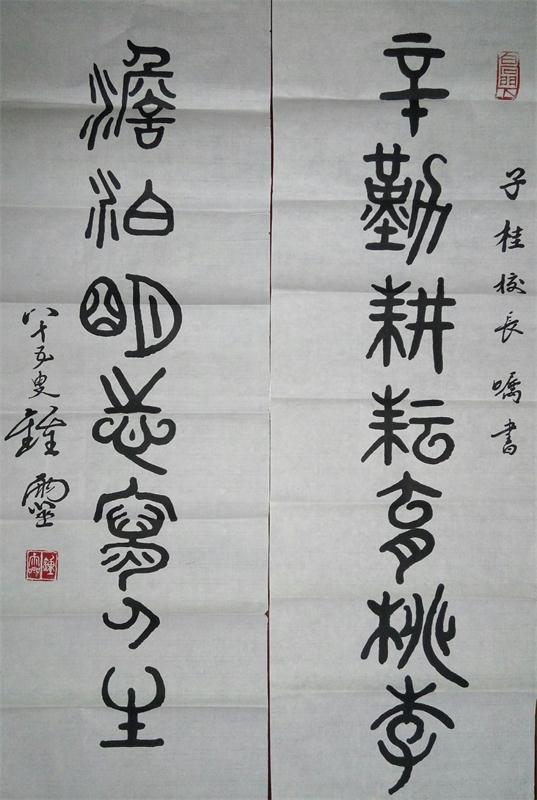 子桂校長嘱書
辛勤耕耘育桃李
澹泊明志寫人生
八十五叟鍾靈
鍾靈